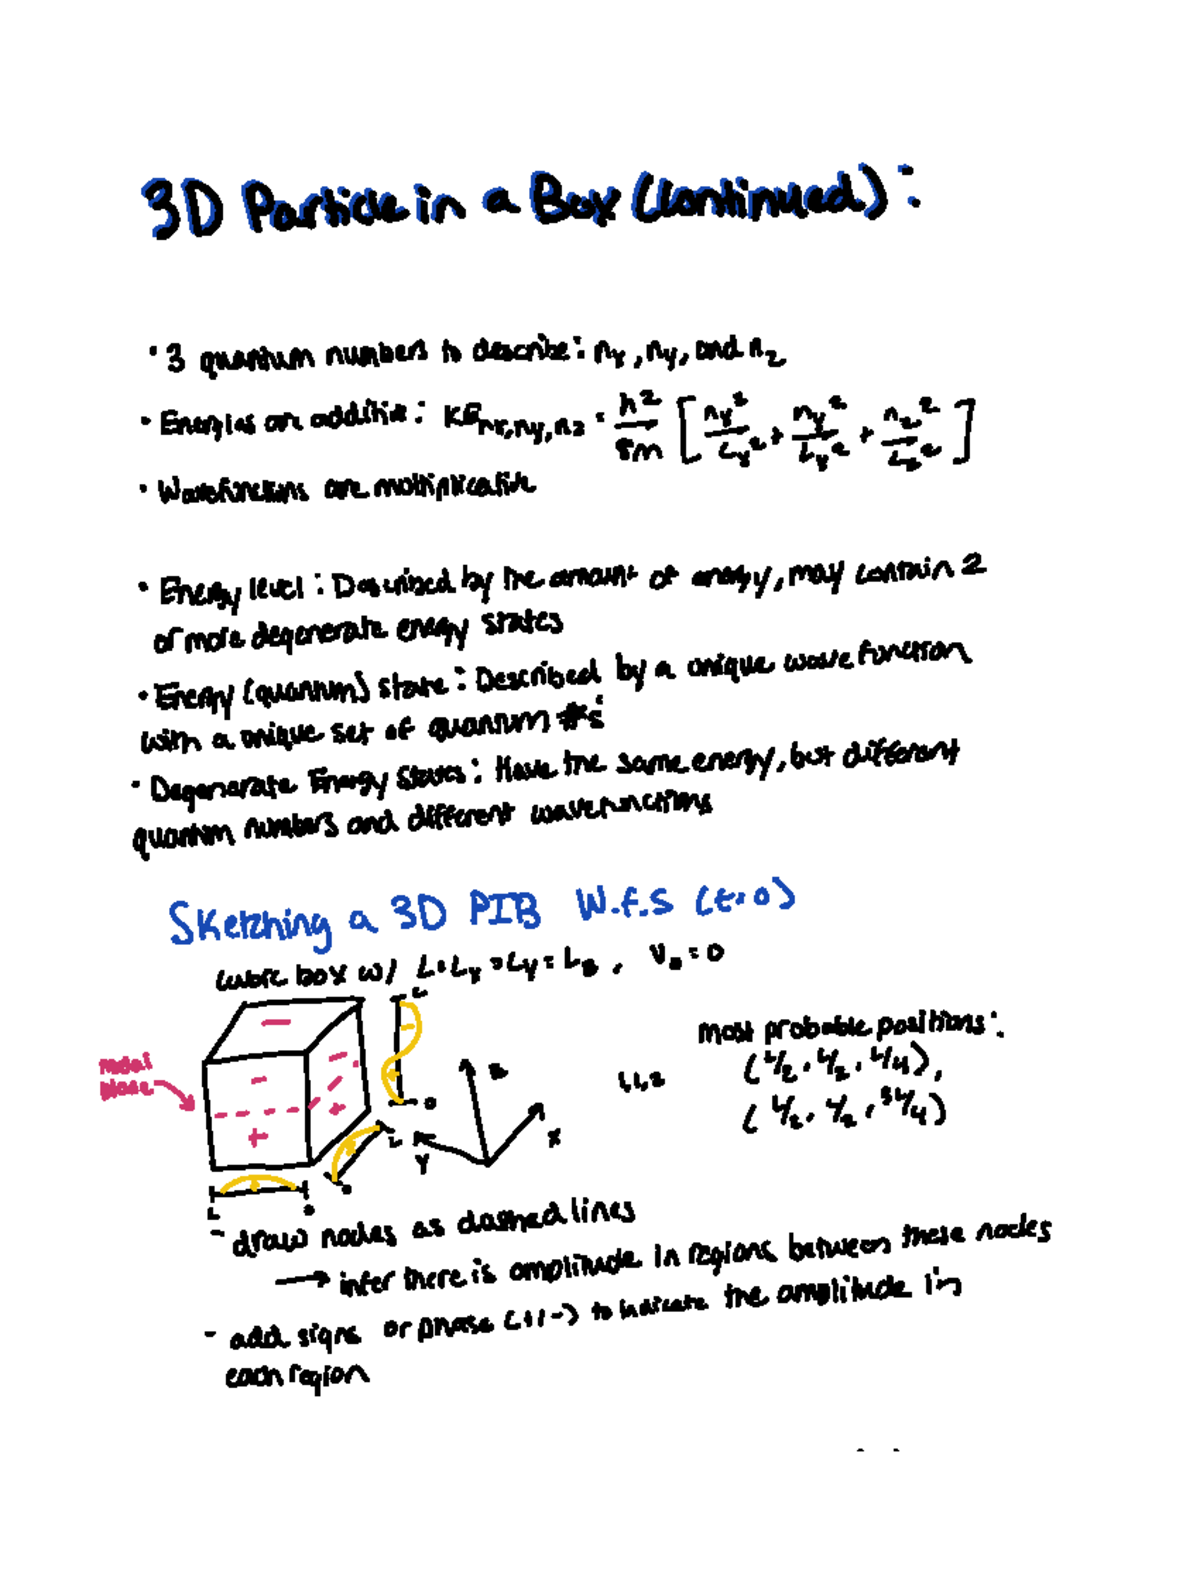 3D Particle in a Box (Continued):
• 3 quantum numbers to describe: nx, ny, and nz
• Energies are additive: KEnx,ny,nz = h²/8m [nx²/Lx² + ny²/Ly² + nz²/Lz²]
• Wavefunctions are multiplicative
• Energy level: Described by the amount of energy, may contain 2
or more degenerate energy states
• Energy (quantum) state: Described by a unique wave function
with a unique set of quantum #s
• Degenerate Energy States: Have the same energy, but different
quantum numbers and different wavefunctions
Sketching a 3D PIB W.f.s (t=0)
cubic box w/ L=Lx=Ly=Lz, V0=0
L
nodal
plane
-
-
-
+
+
-
+
0
L
+
0
L
+
0
z
x
y
1,1,2
most probable positions:
(L/2, L/2, L/4),
(L/2, L/2, 3L/4)
- draw nodes as dashed lines
→ infer there is amplitude in regions between these nodes
- add signs or phase (+/-) to indicate the amplitude in
each region